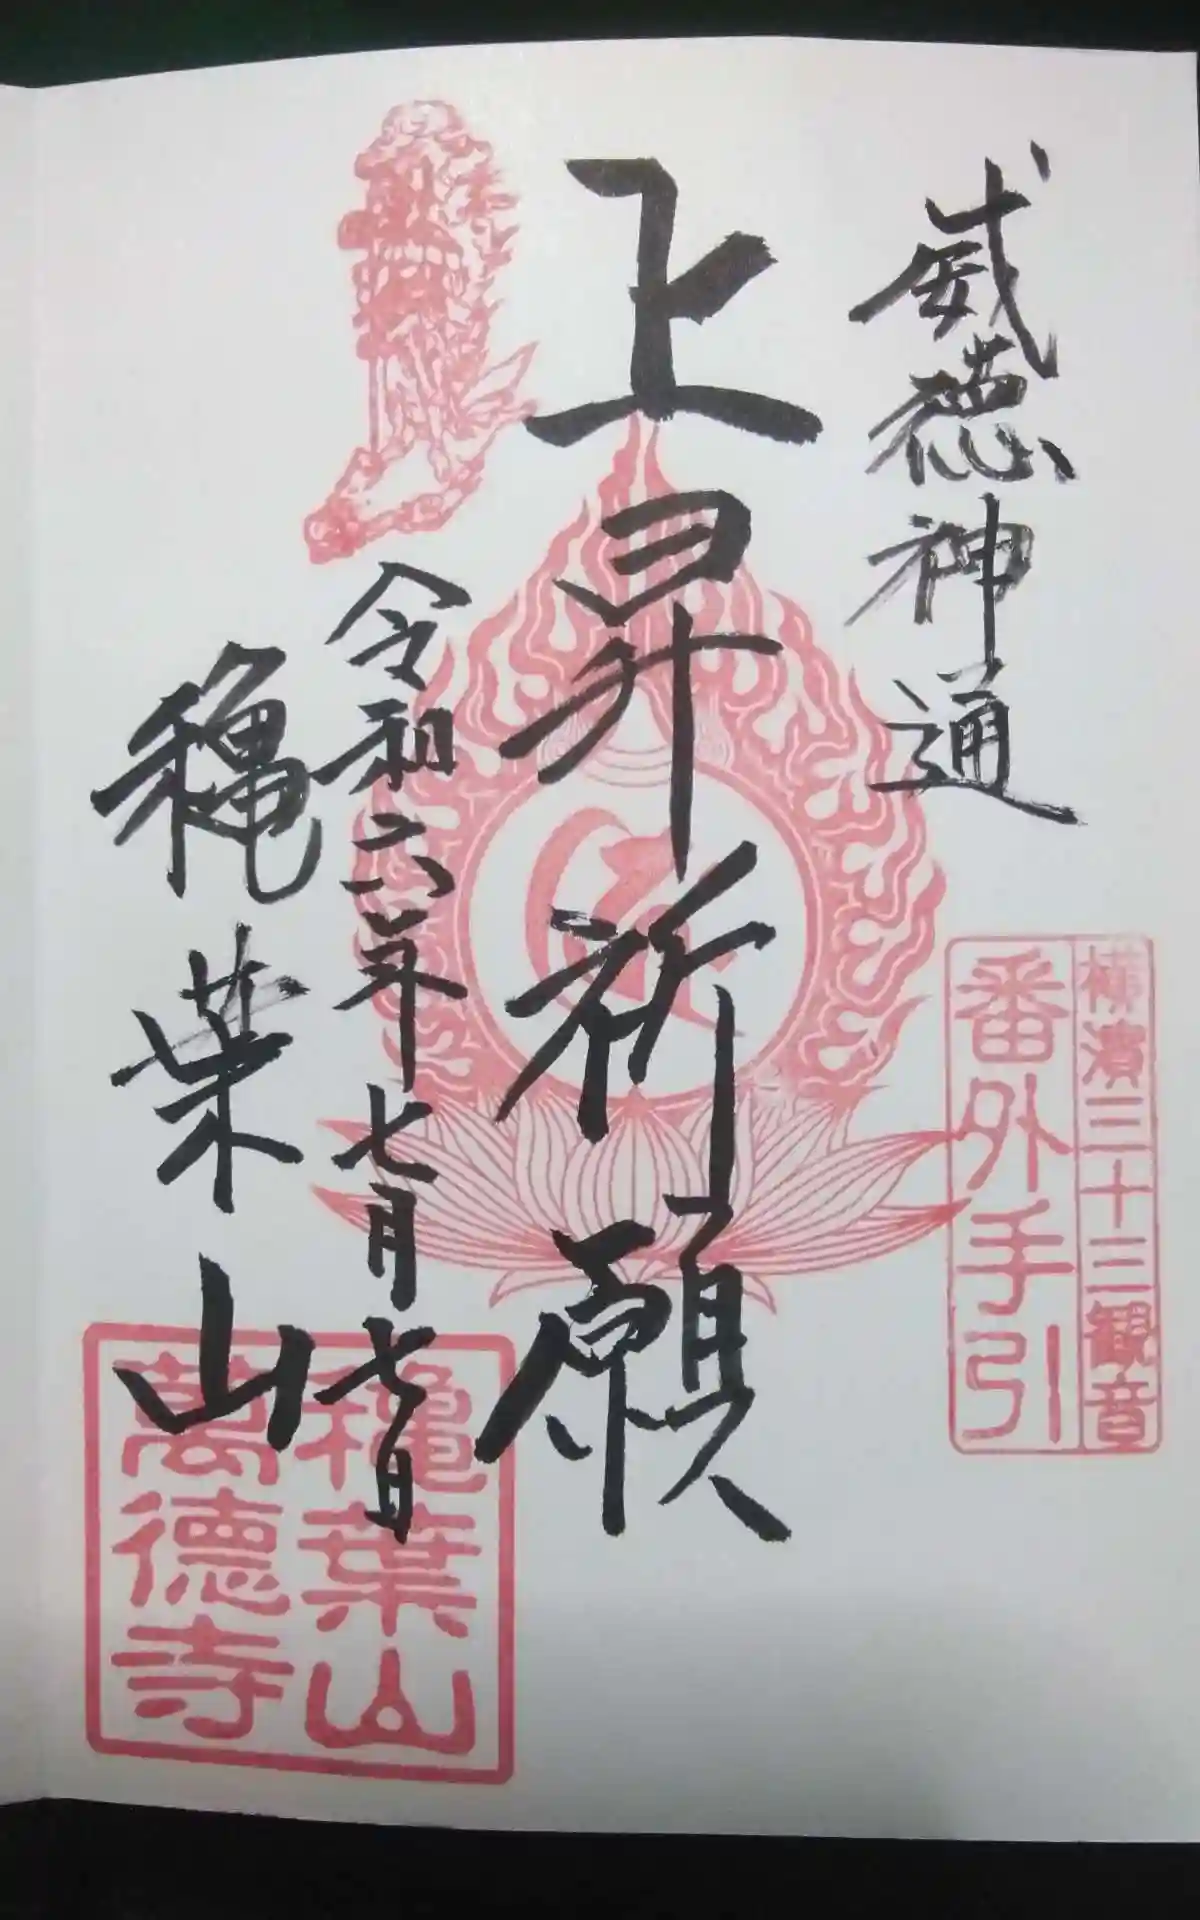 威徳神通
横濱三十三観音
番外手引
上昇祈願
令和六年七月七日
龝葉山
龝葉山
萬德寺